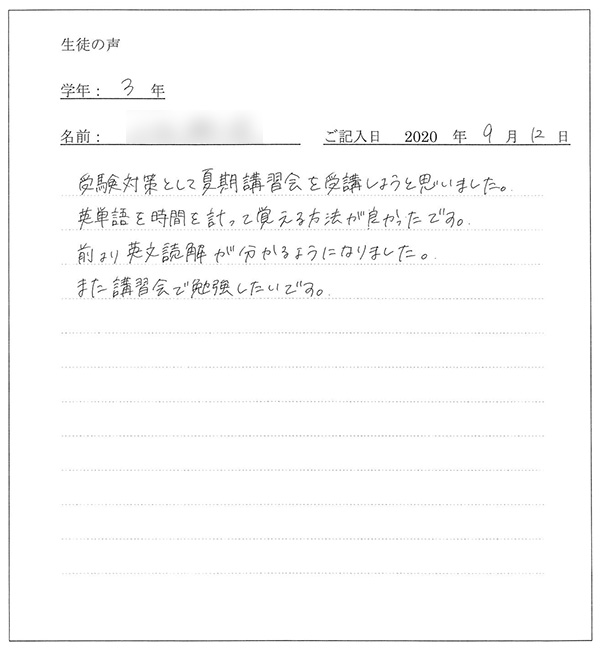 生徒の声
学年： 3 年
名前： ご記入日 2020 年 9 月 12 日
受験対策として夏期講習会を受講しようと思いました。
英単語を時間を計って覚える方法が良かったです。
前より英文読解が分かるようになりました。
また講習会で勉強したいです。